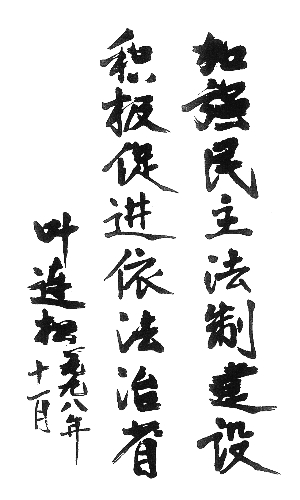 加强民主法制建设
积极促进依法治省
叶连松
一九九八年
十一月